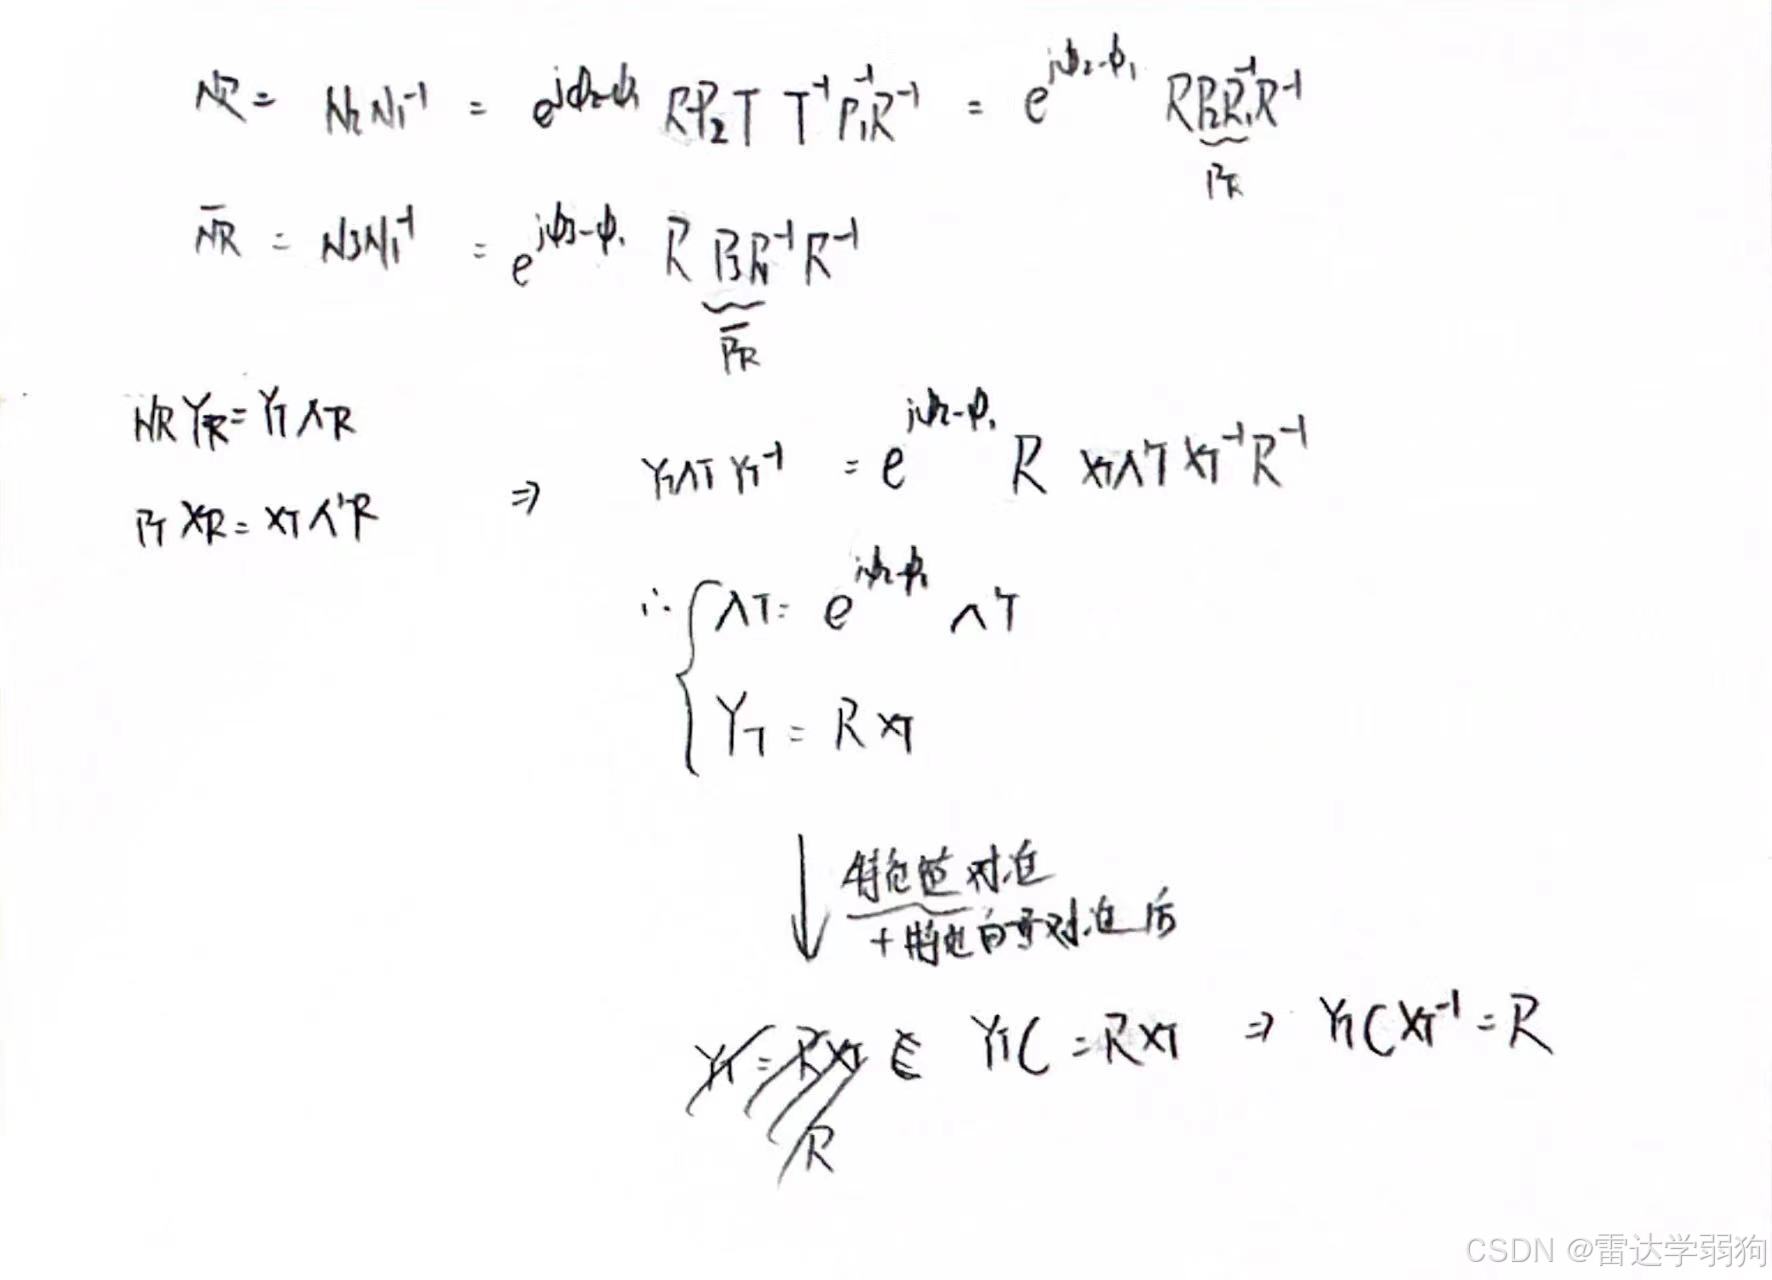 NR = N₂N₁⁻¹ = e^{jφ₂-φ₁} RP₂T T⁻¹P₁⁻¹R⁻¹ = e^{jφ₂-φ₁} RP₂P₁⁻¹R⁻¹
PR
N̄R = N₃N₁⁻¹ = e^{jφ₃-φ₁} R P₃P₁⁻¹R⁻¹
P̄R
NR YR = YT ΛR
PT XR = XT Λ'R
⇒ YTΛT YT⁻¹ = e^{jφ₂-φ₁} R XTΛ'T XT⁻¹R⁻¹
∴ { ΛT = e^{jφ₂-φ₁} Λ'T
YT = R XT
↓ 特征值对应
+特征向量对应后
YT = RXT
YTC = RXT ⇒ YTC XT⁻¹ = R
R
CSDN @雷达学弱狗